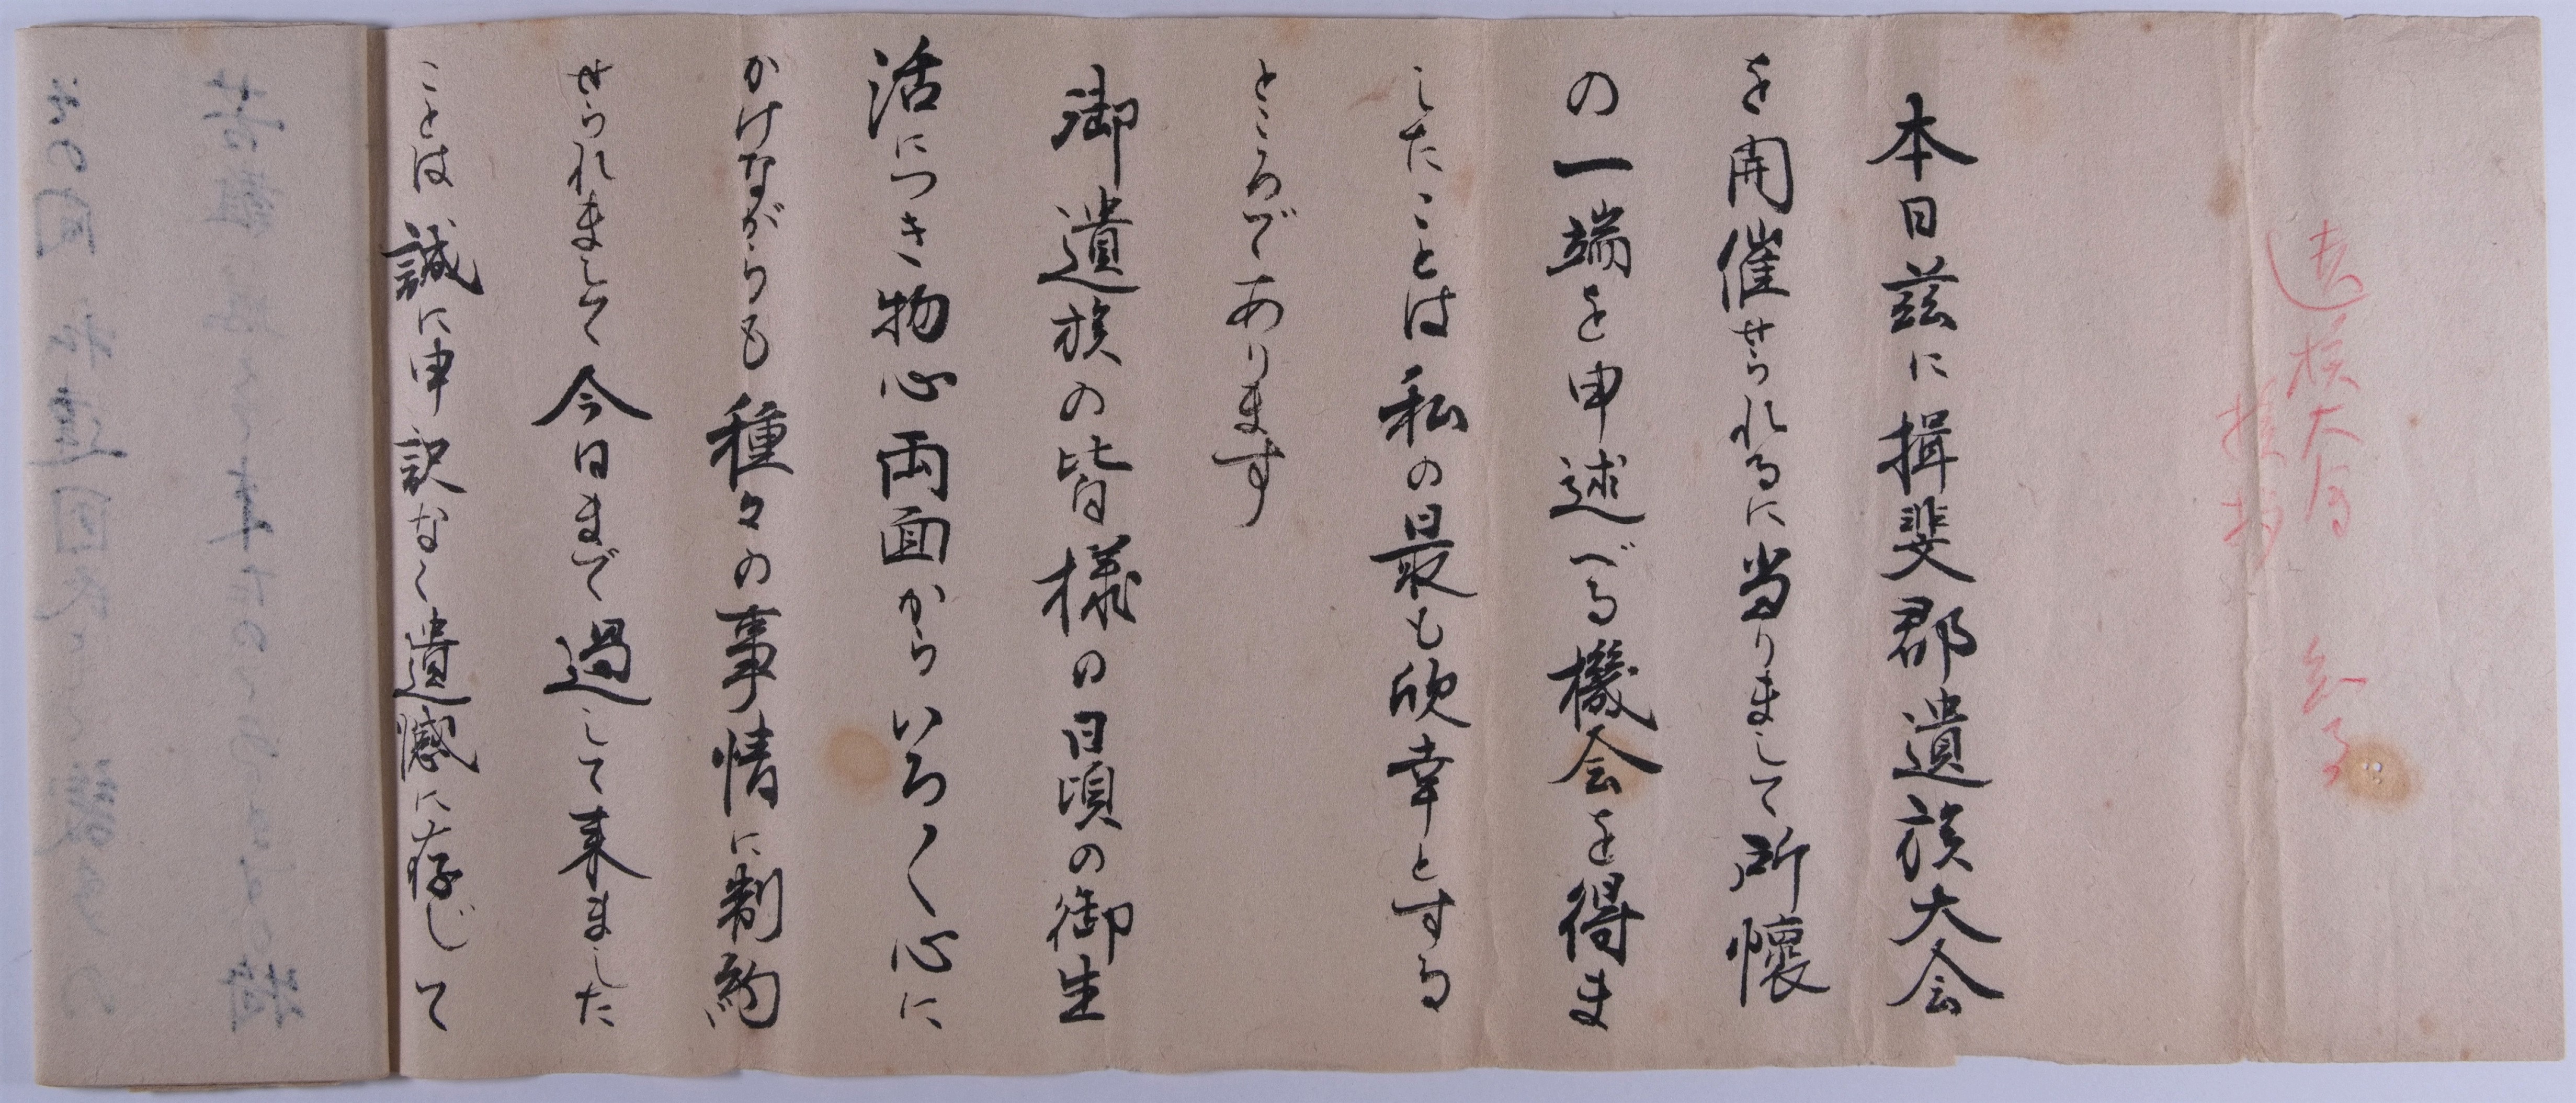 遺族大会
挨拶
本日茲に揖斐郡遺族大会
を開催せられるに当りまして所懐
の一端を申述べる機会を得ま
したことは私の最も欣幸とする
ところであります
御遺族の皆様の日頃の御生
活につき物心両面からいろ〱心に
かけながらも種々の事情に制約
せられまして今日まで過して来ました
ことは誠に申訳なく遺憾に存じて